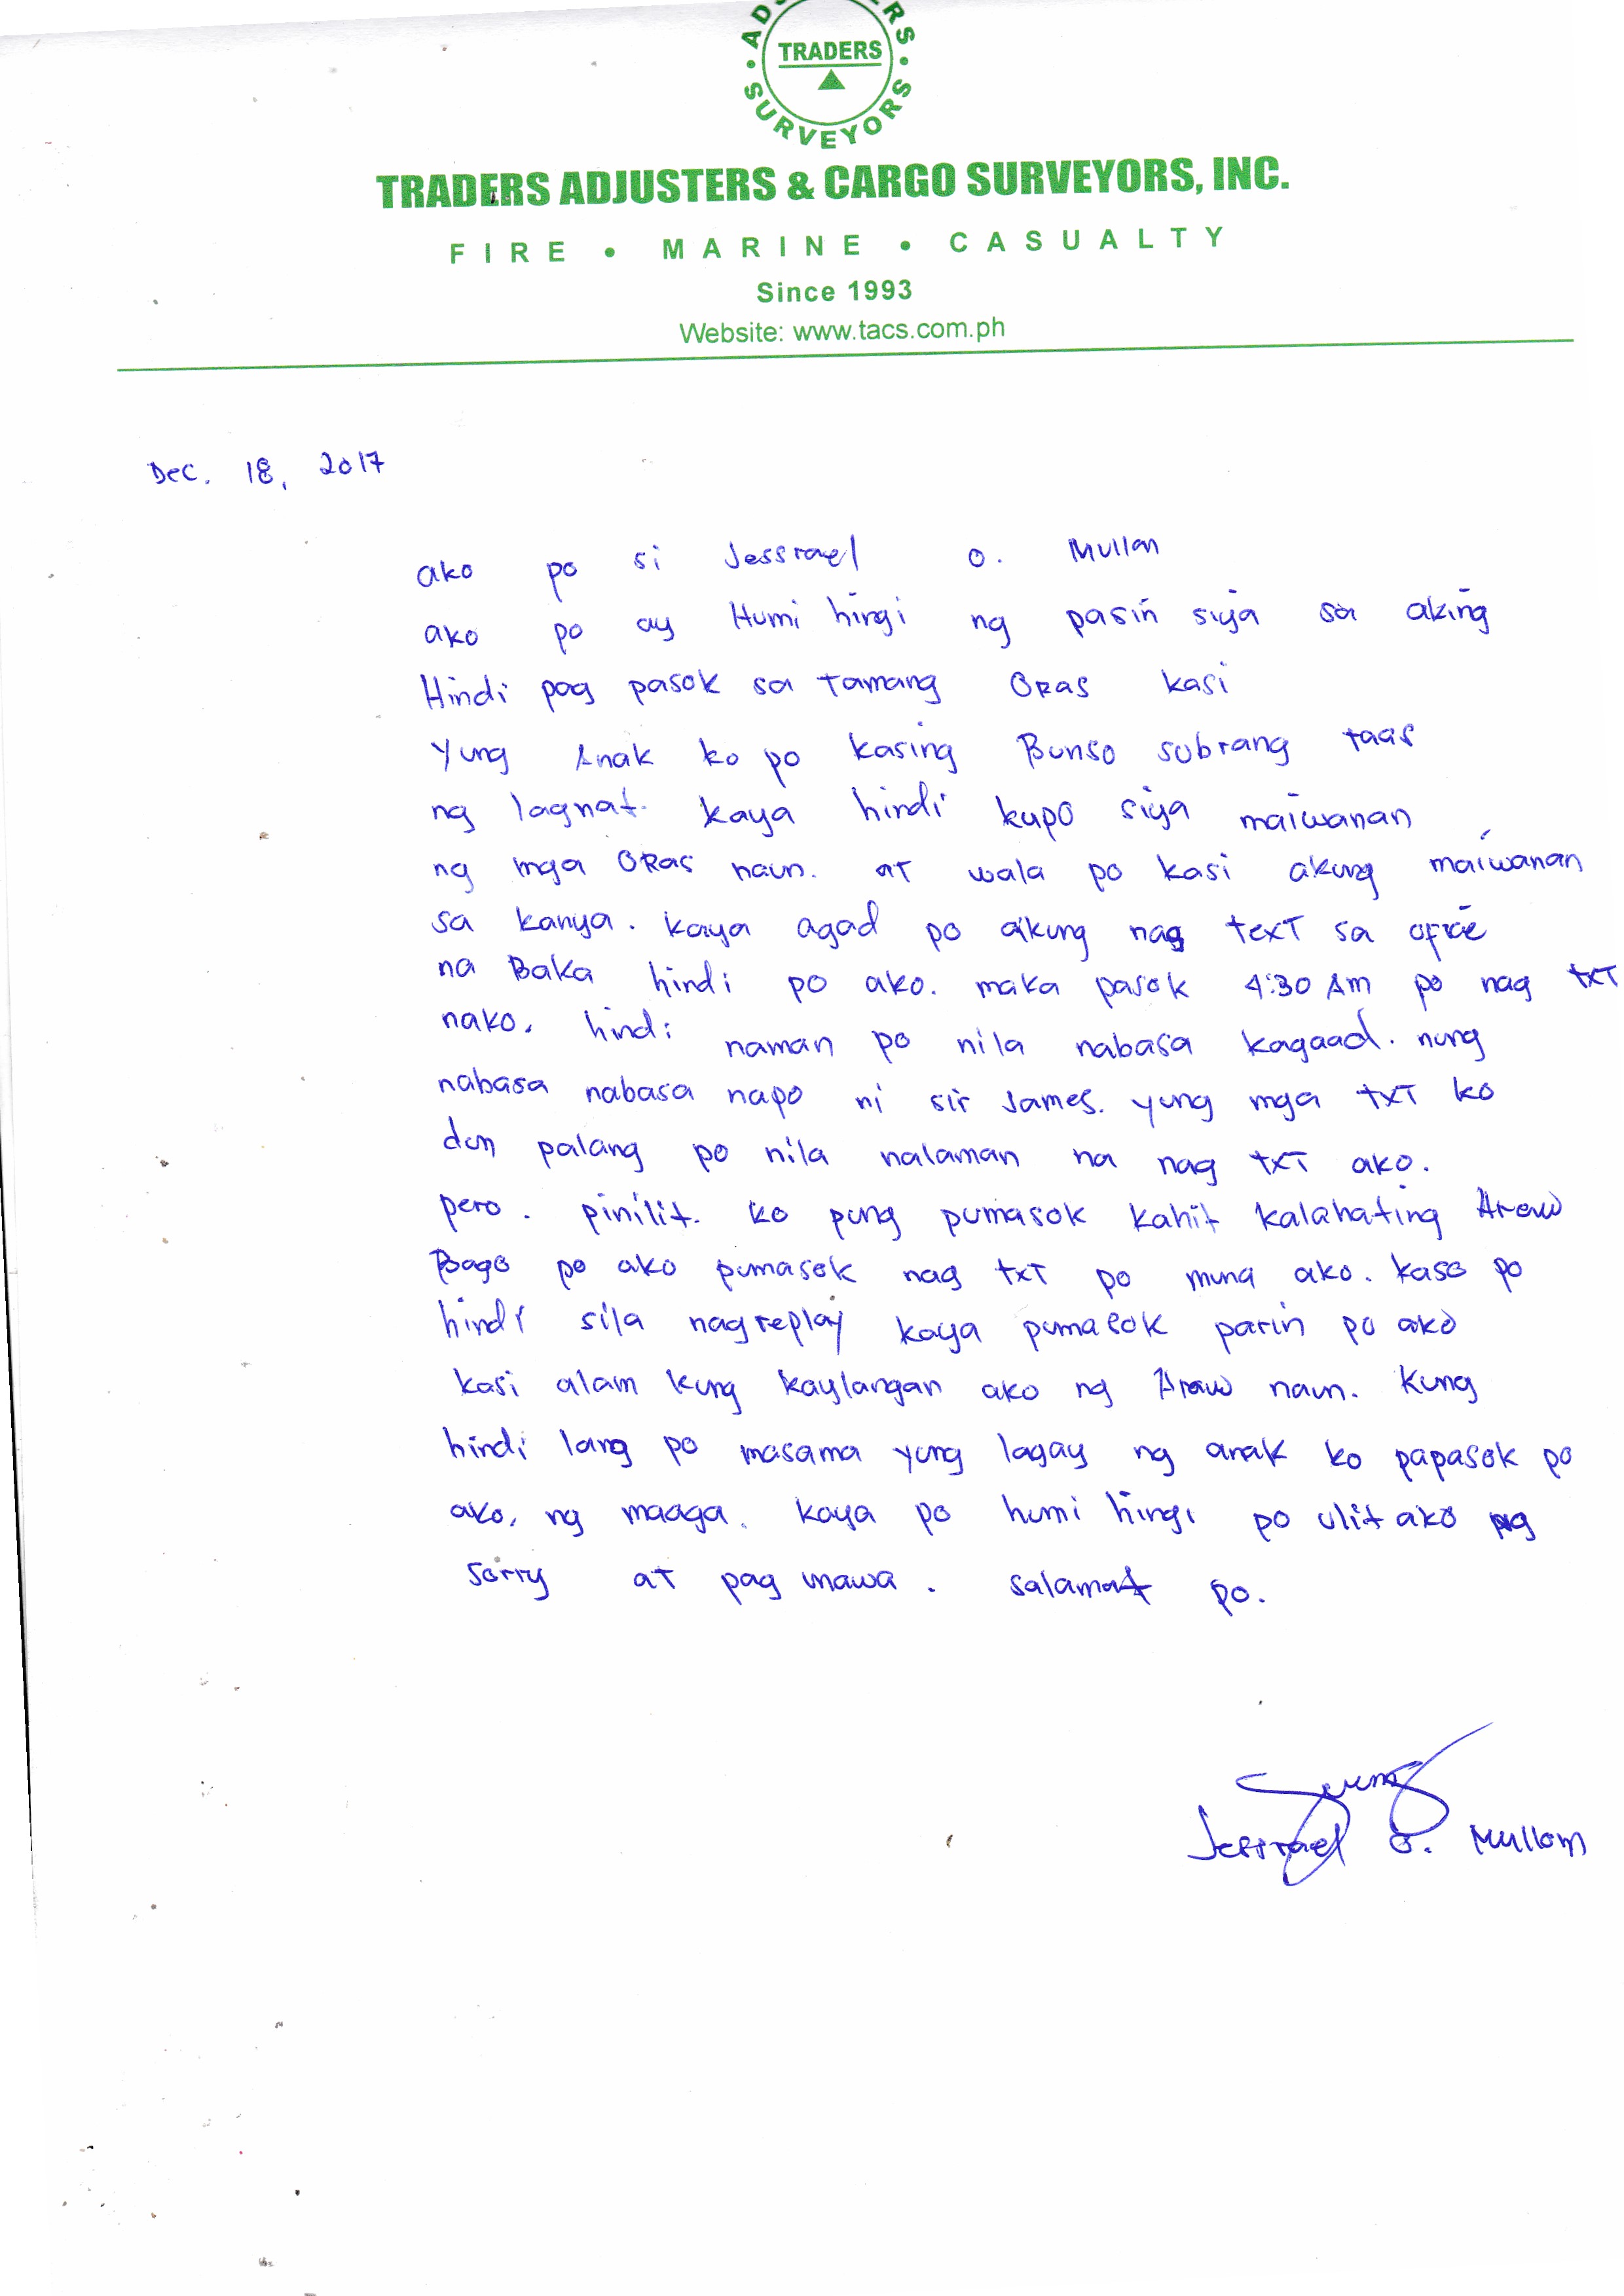 ADJUSTERS • SURVEYORS •
TRADERS
TRADERS ADJUSTERS & CARGO SURVEYORS, INC.
FIRE • MARINE • CASUALTY
Since 1993
Website: www.tacs.com.ph
Dec. 18, 2017
ako po si Jessrael O. Mullan
ako po ay Humi hingi ng pasin siya sa aking
Hindi pag pasok sa tamang ORas kasi
Yung Anak ko po kasing Bunso subrang taas
ng lagnat. kaya hindi kupo siya maiwanan
ng mga ORas naun. at wala po kasi akung maiwanan
sa kanya. kaya agad po akung nag text sa ofice
na Baka hindi po ako. maka pasok 4:30 AM po nag txt
nako. hindi naman po nila nabasa kagaad. nung
nabasa nabasa napo ni sir James. yung mga txt ko
dun palang po nila nalaman na nag txt ako.
pero. pinilit. ko pung pumasok kahit kalahating Araw
Bago po ako pumasok nag txt po muna ako. kaso po
hindi sila nagreplay kaya pumasok parin po ako
kasi alam kung kaylangan ako ng Araw naun. Kung
hindi lang po masama yung lagay ng anak ko papasok po
ako. ng maaga. kaya po humi hingi po ulit ako ng
sorry at pag unawa. salamat po.
Jessrael O. Mullan